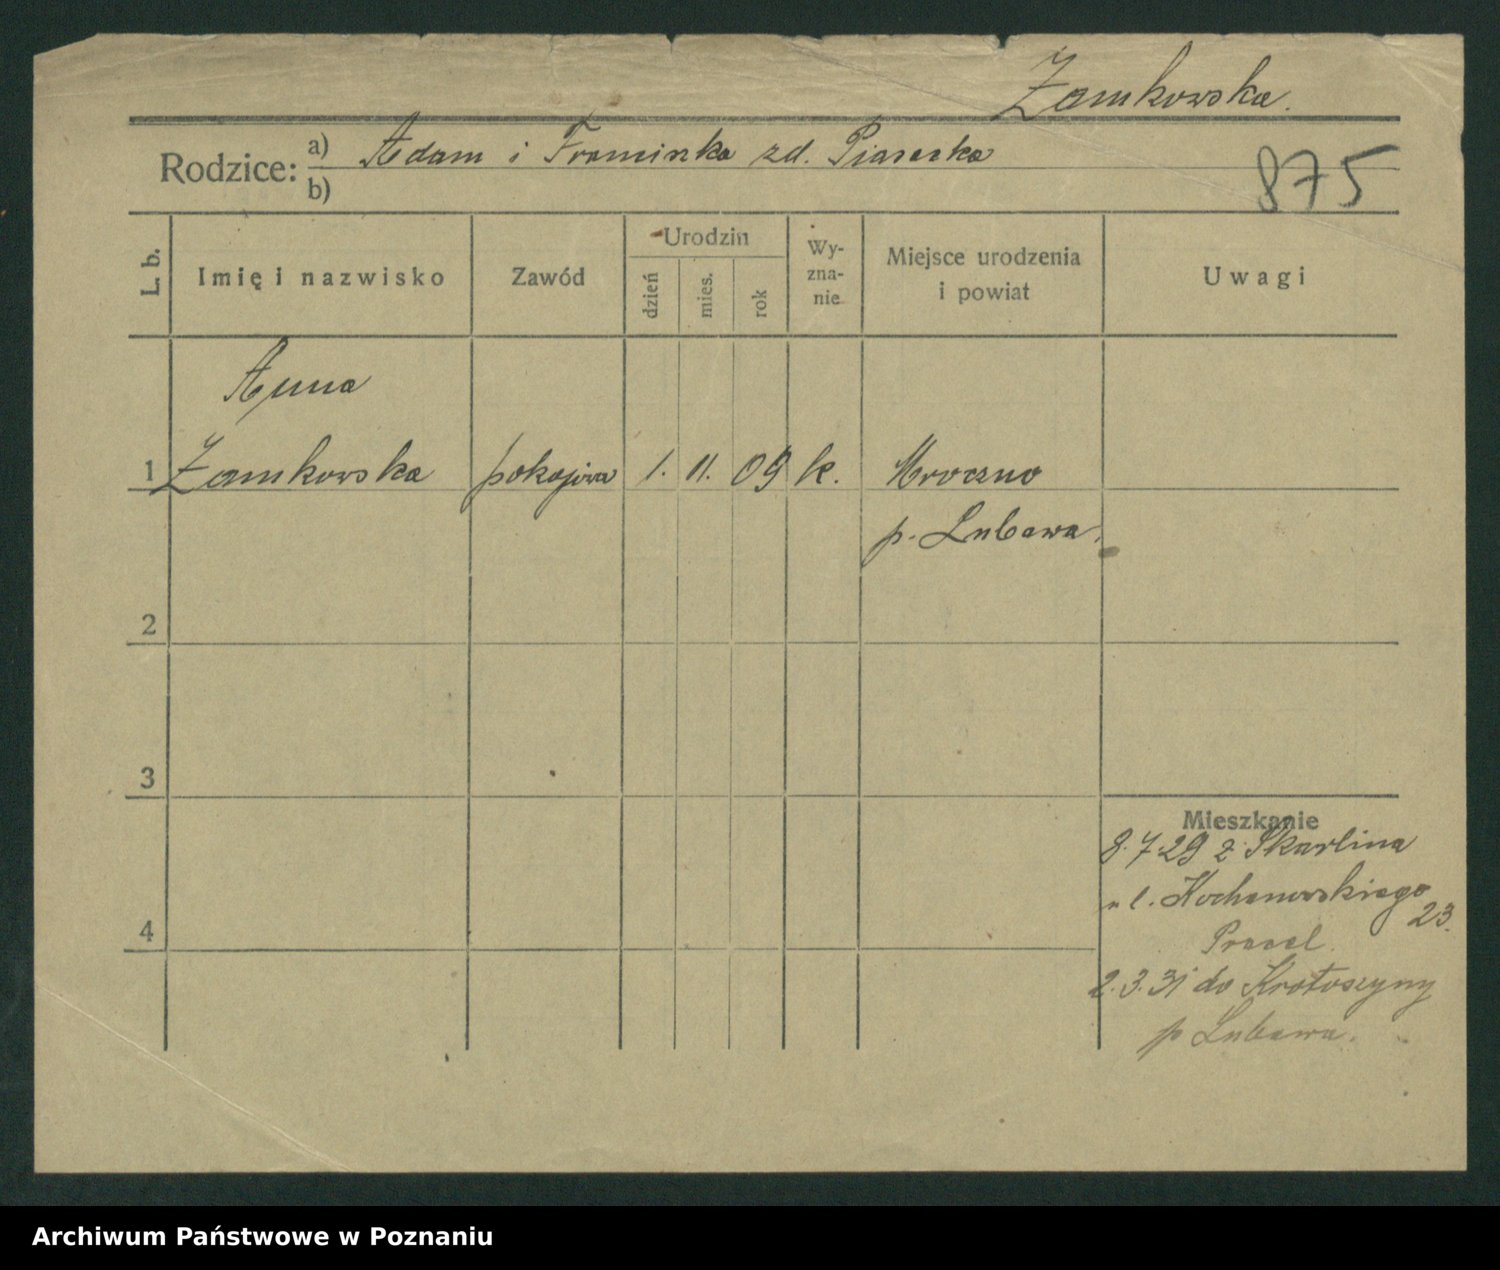 Zamkowska.
Rodzice: a) Adam i Franciszka zd. Piasecka
b)
875
L. b.
Imię i nazwisko
Zawód
Urodzin
dzień
mies.
rok
Wy-
zna-
nie
Miejsce urodzenia
i powiat
Uwagi
Anna
1 Zamkowska pokojowa 1. 11. 09 k. Mroczno
p. Lubawa.
2
3
Mieszkanie
8.7.29 z Skarlina
ul. Kochanowskiego
23.
4
2.3.31 do Krotoszyny
p Lubawa.
Archiwum Państwowe w Poznaniu